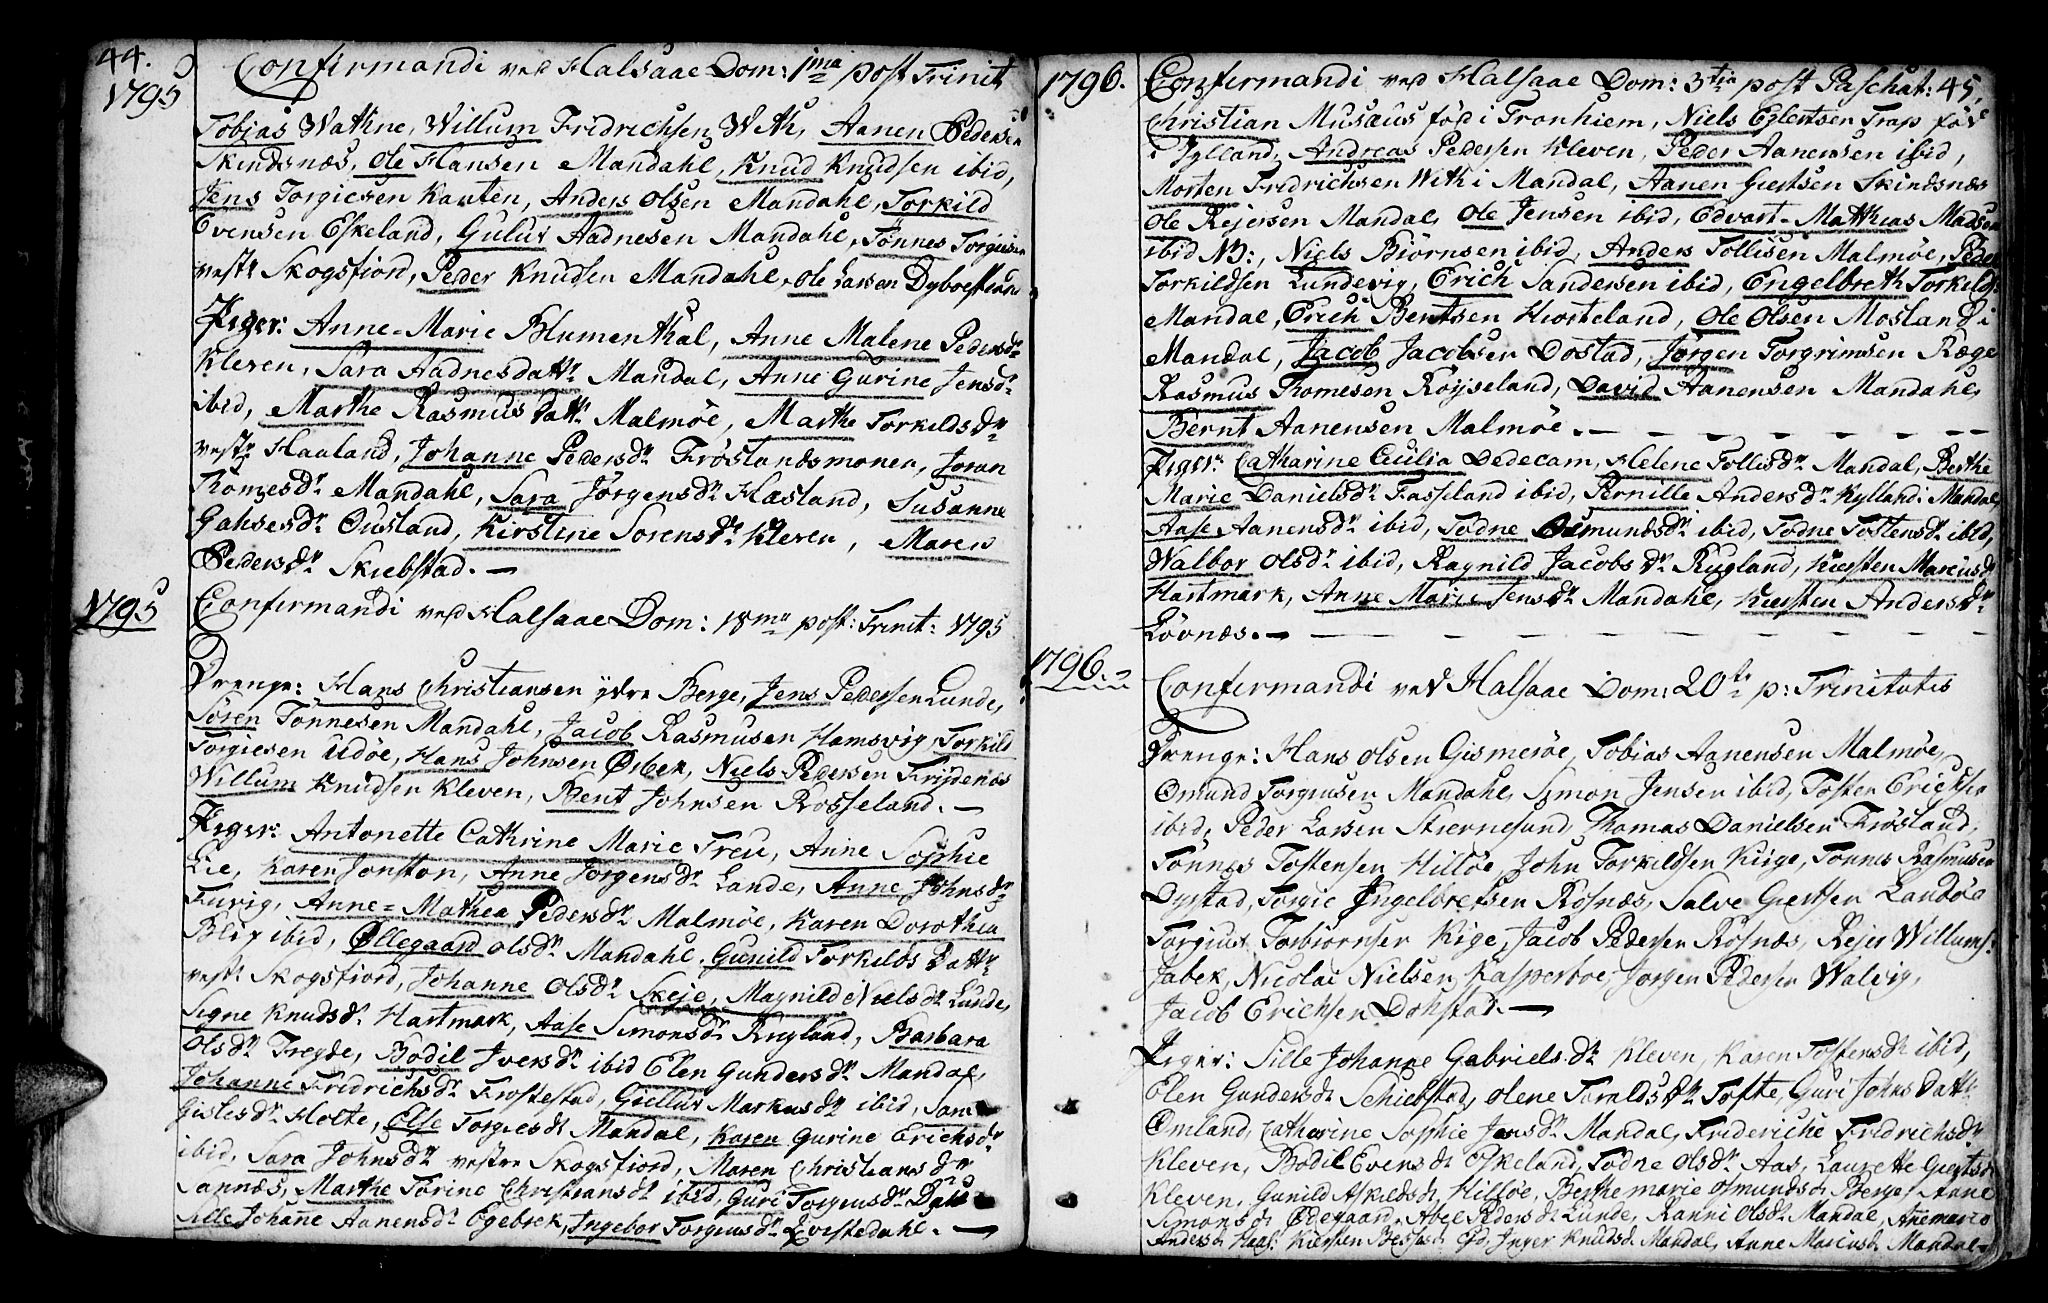 44.
1795
Confirmandi ved Halsaae Dom: 1ma post Trinit
Tobias Wathne, Willum Fridrichsen With, Aanen Pedersen
Skindsnæs, Ole Hansen Mandahl, Knud Knudsen ibid,
Jens Torgiesen Kaaten, Anders Olsen Mandahl, Torkild
Evensen Eskeland, Gulur Aadnesen Mandahl, Tønnes Torgiusen
vestr Skogsfiord, Peder Knudsen Mandahl, Ole Larsen
Piger: Anne-Marie Blumenthal, Anne Malene Pedersdr
Kleven, Sara Aadnesdattr Mandal, Anne Gurine Jensdr
ibid, Marthe Rasmusdattr Malmøe, Marthe Torkildsdr
vestr Haaland, Johanne Pedersdr Frøslandsmonen, Joran
Thomesdr Mandahl, Sara Jørgensdr Hæsland, Susanne
Gahsesdr Ousland, Kirstine Sorensdr Kleven, Maren
Pedersdr Skiebstad.
1795
Confirmandi ved Halsaae Dom: 18me post: Trinit: 1795
Drenge: Hans Christiansen ydre Berge, Jens Pedersen Lunde,
Søren Tønnesen Mandahl, Jacob Rasmusen Hamsvig, Torkild
Torgiesen Udøe, Hans Johnsen Orbek, Niels Pedersen Frydenes
Willum Knudsen Kleven, Bent Johnsen Rosseland.
Piger: Antonette Cathrine Marie Treu, Anne Sophie
Lie, Karen Jonston, Anne Jørgensdr Lande, Anne Johnsdr
Furig, Anne=Mathea Pedersdr Malmøe, Karen Dorothea
Blix ibid, Øllegaard Olsdr Mandahl, Gunild Torkilds Dattr
vestr Skogsfiord, Johanne Olsdr Skeje, Magnild Nielsdr Lunde,
Signe Knudsdr Hartmark, Aase Simonsdr Rugland, Barbara
Olsdr Tregde, Bodil Iversdr ibid Elen Gundersdr Mandal,
Johanne Fridrichsdr Frostestad, Giellur Markusdr ibid,
Gislesdr Holte, Else Torgiesdr Mandal, Karen Gurine Erichsdr
ibid, Sara Johnsdr vestre Skogsfiord, Maren Christiansdr
Sannæs, Marthe Torine Christiansdr ibid, Guri Torgiusdr
Sille Johanne Aanensdr Egebrek, Ingebor Torgiusdr
1796.
Confirmandi ved Halsaae Dom: 3tia post Paschat: 45.
Christian Musæus fød i Tronhiem, Niels Eglertsen Trap fød
i Jylland, Andreas Pedersen Kleven, Peder Aanensen ibid,
Morten Fridrichsen With i Mandal, Aanen Giertsen Skindsnæs
Ole Rejersen Mandal, Ole Jensen ibid, Edvart-Mathias Madsen
ibid NB:, Niels Biørnsen ibid, Anders Tollisen Malmøe, Peder
Torkildsen Lundevig, Erich Sandersen ibid, Engelbreth Torkilds:
Mandal, Erich Bentsen Hiorteland, Ole Olsen Mosland i
Mandal, Jacob Jacobsen Dostad, Jørgen Torgrimsen Røge
Rasmus Thomesen Røyseland, David Aanensen Mandahl,
Bernt Aanensen Malmøe.
Piger: Catharine Cecilia Dedecam, Helene Tollisdr Mandal, Berthe
Marie Danielsdr Fasseland ibid, Pernille Andersdr Kylland i Mandal,
Aase Aanensdr ibid, Todne Osmundsdr ibid, Todne Tostensdr ibid,
Walbor Olsdr ibid, Ragnild Jacobsdr Rugland, Kiersten Marcusdr
Hartmark, Anne Marie Jensdr Mandahl, Kiersten Andersdr
Løvnæs.
1796.
Confirmandi ved Halsaae Dom: 20de p: Trinitatis
Drenge: Hans Olsen Gismerøe, Tobias Aanensen Malmøe,
Omund Torgiusen Mandahl, Simon Jensen ibid, Tosten Erichsen
ibid, Peder Larsen Stiernesund, Thomas Danielsen Frøsland,
Tønnes Tostensen Hilløe, John Torkildsen Kiige, Tønnes Rasmusen
Dystad, Torgie Ingelbretsen Rosnæs, Salve Giertsen Landøe
Torgius Torbiørnsen Kige, Jacob Pedersen Rosnæs, Rejer Willums:
Jabek, Nicolai Nielsen Kasperboe, Jørgen Pedersen Walvig,
Jacob Erichsen Dohstad.
Piger: Sille Johanne Gabrielsdr Kleven, Karen Tostensdr ibid,
Elen Gundersdr Schiebstad, Olene Toraldsdr Tofte, Guri Johns Datt:
Omland, Catharine Sophie Jensdr Mandal, Frideriche Fridrichsdr
Kleven, Bodil Evensdr Eskeland, Todne Olsdr Aas, Laurette Giertsdr
Kleven, Gunild Askildsdr Hilløe, Berthe marie Osmundsdr Berge, Anne
Simonsdr Ødegaard, Abel Pedersdr Lunde, Ranni Olsdr Mandal, Annemarie
Andersdr Haal: Kiersten ibid, Inger Knudsdr Mandal, Anne Marcusdr Mandal.